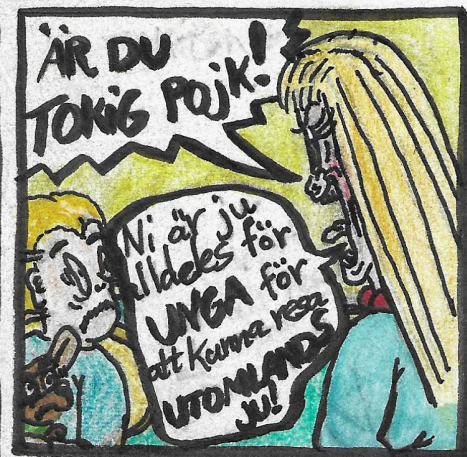 ÄR DU
TOKIG POJK!
Ni är ju
alldeles för
UNGA för
att kunna resa
UTOMLANDS
JU!